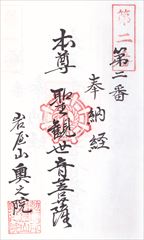 第二
第二番
奉納経
本尊 聖観世音菩薩
岩尾山 奥之院